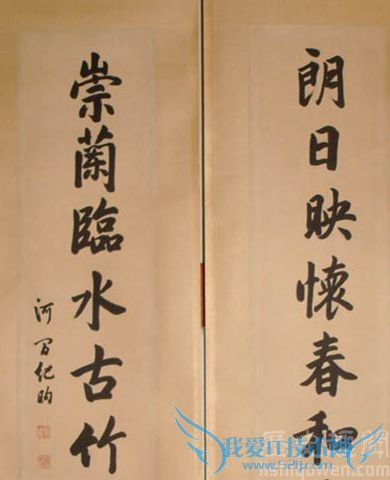 朗日映懷春和
崇蘭臨水古竹
河间纪昀
我爱IT技术网
www.52ij.com